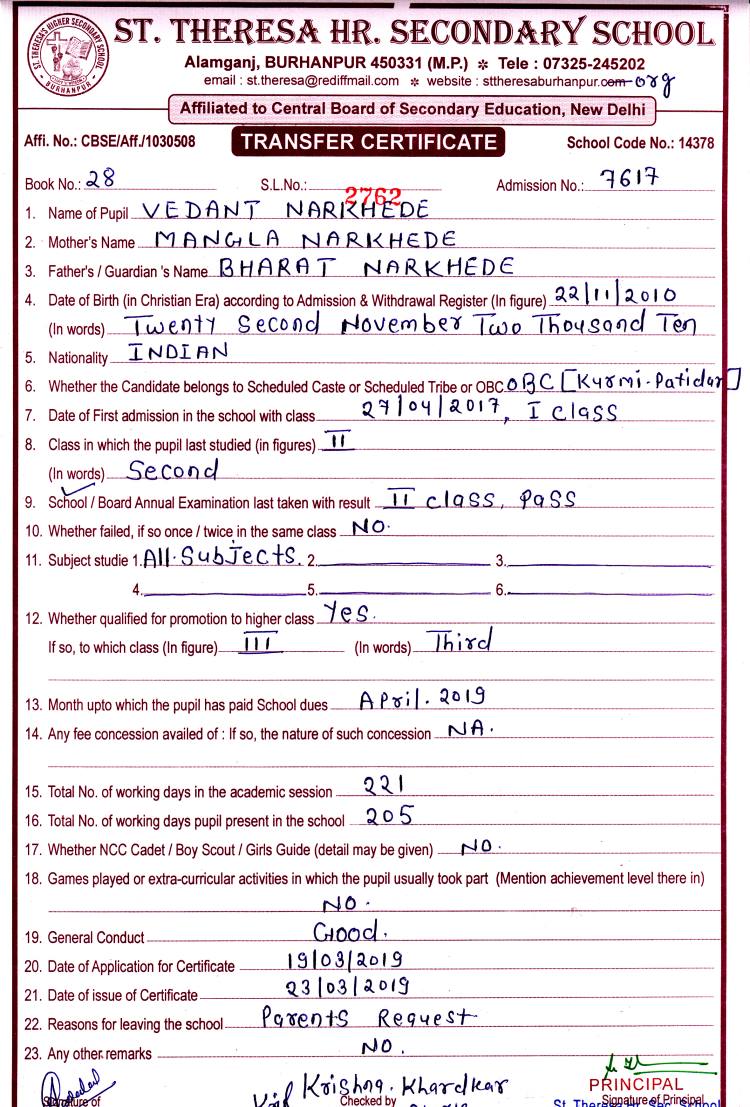 ST. THERESA'S HIGHER SECONDARY SCHOOL
BURHANPUR
ST. THERESA HR. SECONDARY SCHOOL
Alamganj, BURHANPUR 450331 (M.P.) ✻ Tele : 07325-245202
email : st.theresa@rediffmail.com ✻ website : sttheresaburhanpur.com org
Affiliated to Central Board of Secondary Education, New Delhi
Affi. No.: CBSE/Aff./1030508 TRANSFER CERTIFICATE School Code No.: 14378
Book No.: 28 S.L.No.: 2762 Admission No.: 7617
1. Name of Pupil VEDANT NARKHEDE
2. Mother's Name MANGLA NARKHEDE
3. Father's / Guardian 's Name BHARAT NARKHEDE
4. Date of Birth (in Christian Era) according to Admission & Withdrawal Register (In figure) 22/11/2010
(In words) Twenty Second November Two Thousand Ten
5. Nationality INDIAN
6. Whether the Candidate belongs to Scheduled Caste or Scheduled Tribe or OBC OBC [Kurmi-Patidar]
7. Date of First admission in the school with class 27/04/2017, I class
8. Class in which the pupil last studied (in figures) II
(In words) Second
9. School / Board Annual Examination last taken with result II class, Pass
10. Whether failed, if so once / twice in the same class NO.
11. Subject studie 1. All Subjects. 2. 3.
4. 5. 6.
12. Whether qualified for promotion to higher class Yes.
If so, to which class (In figure) III (In words) Third
13. Month upto which the pupil has paid School dues April. 2019
14. Any fee concession availed of : If so, the nature of such concession NA.
15. Total No. of working days in the academic session 221
16. Total No. of working days pupil present in the school 205
17. Whether NCC Cadet / Boy Scout / Girls Guide (detail may be given) NO.
18. Games played or extra-curricular activities in which the pupil usually took part (Mention achievement level there in)
NO.
19. General Conduct Good.
20. Date of Application for Certificate 19/03/2019
21. Date of issue of Certificate 23/03/2019
22. Reasons for leaving the school Parents Request
23. Any other remarks NO.
Krishna. Khardkar PRINCIPAL
Signature of Checked by Signature of Principal
St. Theresa Hr. Sec. School